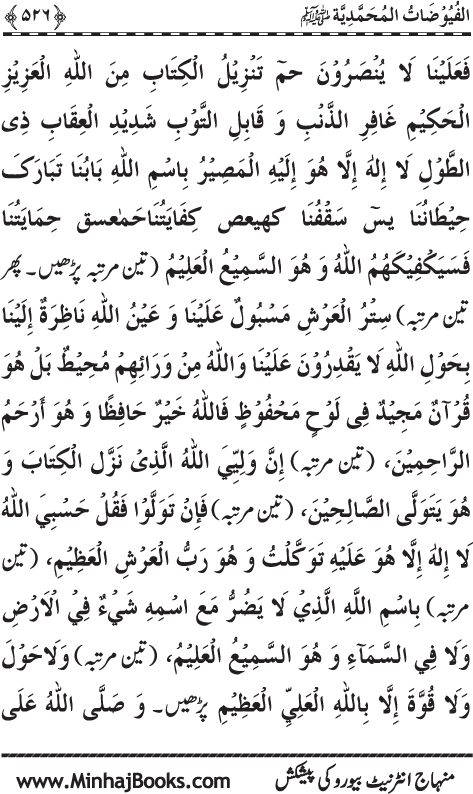 الفُيُوْضَاتُ المُحَمَّدِيَّة ﷺ ﴿۵۲۶﴾
فَعَلَيْنَا لَا يُنْصَرُوْنَ حمٓ تَنْزِيْلُ الْكِتَابِ مِنَ اللهِ الْعَزِيْزِ
الْحَكِيْمِ غَافِرِ الذَّنْبِ وَ قَابِلِ التَّوْبِ شَدِيْدِ الْعِقَابِ ذِى
الطَّوْلِ لَا إِلٰهَ إِلَّا هُوَ إِلَيْهِ الْمَصِيْرُ بِاسْمِ اللهِ بَابُنَا تَبَارَكَ
حِيْطَانُنَا يٰسٓ سَقْفُنَا كهيعص كِفَايَتُنَا حمٓعسق حِمَايَتُنَا
فَسَيَكْفِيْكَهُمُ اللهُ وَ هُوَ السَّمِيْعُ الْعَلِيْمُ (تین مرتبہ پڑھیں۔ پھر
تین مرتبہ) سِتْرُ الْعَرْشِ مَسْبُوْلٌ عَلَيْنَا وَ عَيْنُ اللهِ نَاظِرَةٌ إِلَيْنَا
بِحَوْلِ اللهِ لَا يَقْدِرُوْنَ عَلَيْنَا وَاللهُ مِنْ وَرَائِهِمْ مُحِيْطٌ بَلْ هُوَ
قُرْآنٌ مَجِيْدٌ فِى لَوْحٍ مَحْفُوْظٍ فَاللهُ خَيْرٌ حَافِظًا وَ هُوَ أَرْحَمُ
الرَّاحِمِيْنَ، (تین مرتبہ) إِنَّ وَلِيِّيَ اللهُ الَّذِىْ نَزَّلَ الْكِتَابَ وَ
هُوَ يَتَوَلَّى الصَّالِحِيْنَ، (تین مرتبہ) فَإِنْ تَوَلَّوْا فَقُلْ حَسْبِيَ اللهُ
لَا إِلٰهَ إِلَّا هُوَ عَلَيْهِ تَوَكَّلْتُ وَ هُوَ رَبُّ الْعَرْشِ الْعَظِيْمِ، (تین
مرتبہ) بِاسْمِ اللهِ الَّذِيْ لَا يَضُرُّ مَعَ اسْمِهِ شَيْءٌ فِيْ الْاَرْضِ
وَلَا فِي السَّمَآءِ وَ هُوَ السَّمِيْعُ الْعَلِيْمُ، (تین مرتبہ) وَلَاحَوْلَ
وَلَا قُوَّةَ إِلَّا بِاللهِ الْعَلِيِّ الْعَظِيْمِ پڑھیں۔ وَ صَلَّى اللهُ عَلَى
منہاج انٹرنیٹ بیورو کی پیشکش www.MinhajBooks.com